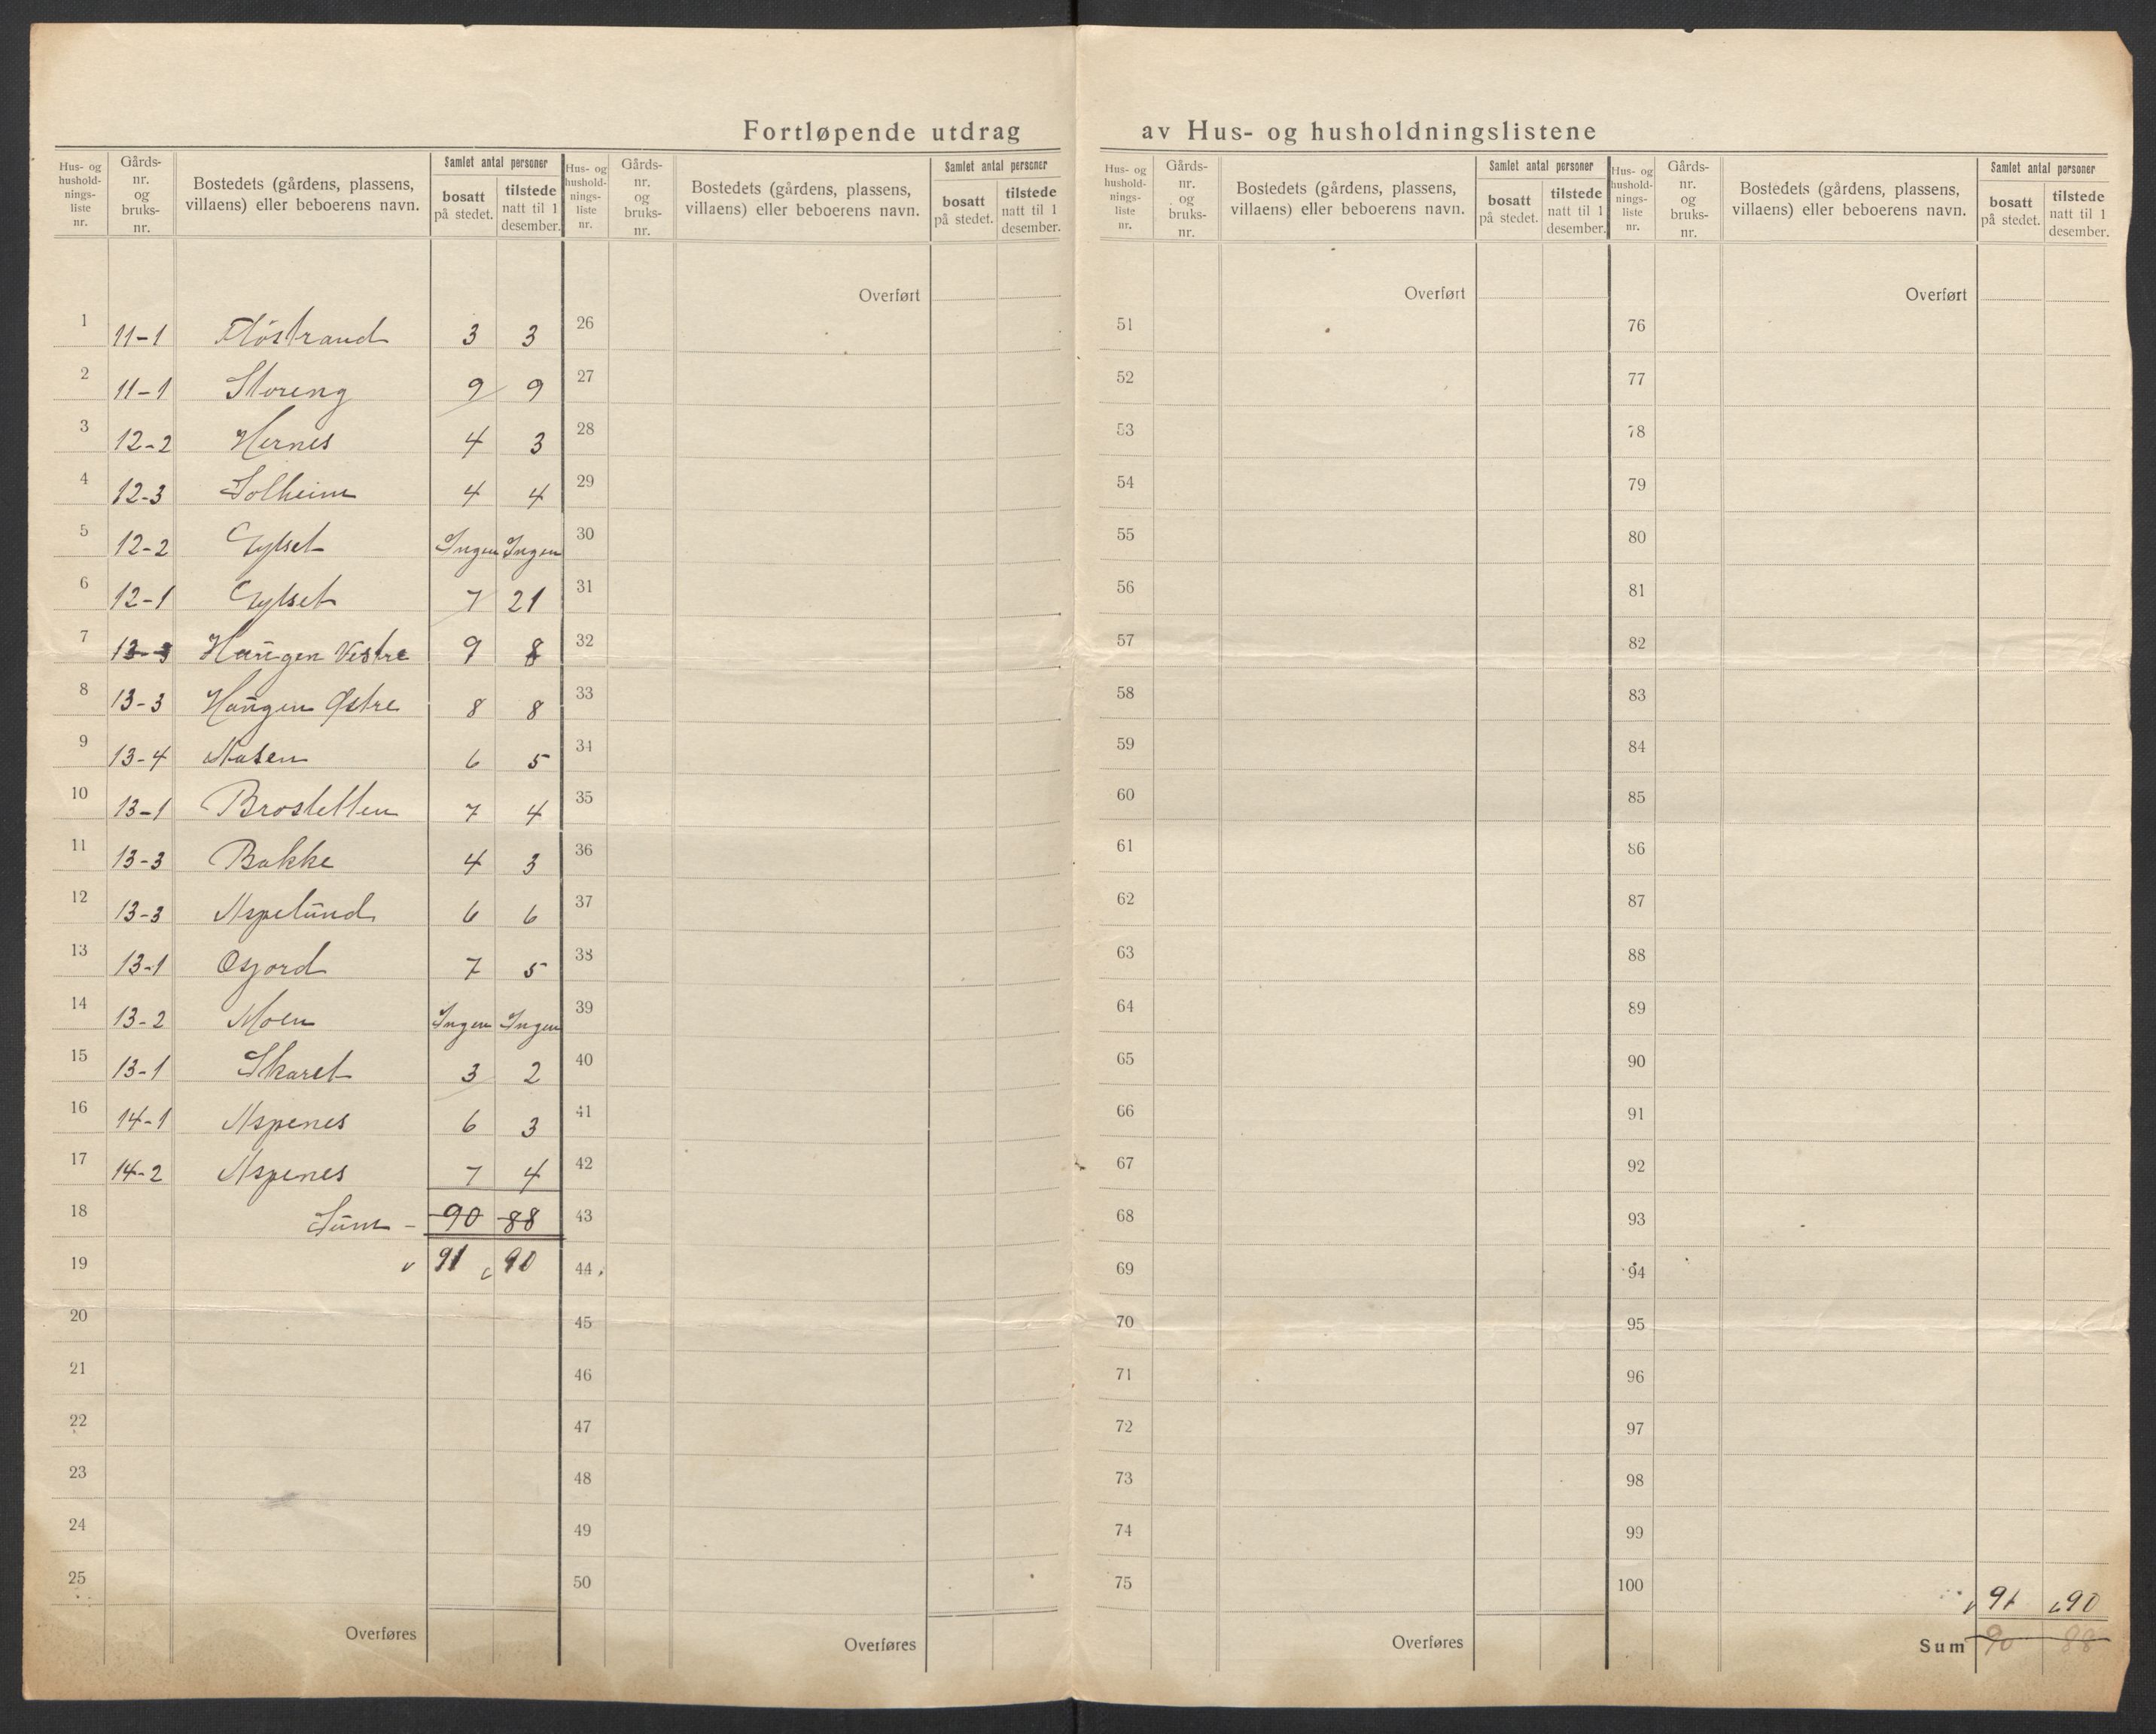 Fortløpende utdrag av Hus- og husholdningslistene
Hus- og hushold- nings- liste nr.
Gårds- nr. og bruks- nr.
Bostedets (gårdens, plassens, villaens) eller beboerens navn.
Samlet antal personer
bosatt på stedet.
tilstede natt til 1 desember.
1 11-1 Fløstrand 3 3
2 11-1 Storeng 9 9
3 12-2 Hernes 4 3
4 12-3 Solheim 4 4
5 12-2 Gylset Ingen Ingen
6 12-1 Gylset 7 21
7 13-3 Haugen Vestre 9 8
8 13-3 Haugen Østre 8 8
9 13-4 Aasen 6 5
10 13-1 Brosletten 7 4
11 13-3 Bakke 4 3
12 13-3 Aspelund 6 6
13 13-1 Osjord 7 5
14 13-2 Moen Ingen Ingen
15 13-1 Skaret 3 2
16 14-1 Aspenes 6 3
17 14-2 Aspenes 7 4
18 Sum - 90 88
19 v 91 90
20
21
22
23
24
25
Overføres
Hus- og hushold- nings- liste nr.
Gårds- nr. og bruks- nr.
Bostedets (gårdens, plassens, villaens) eller beboerens navn.
Samlet antal personer
bosatt på stedet.
tilstede natt til 1 desember.
Overført
26
27
28
29
30
31
32
33
34
35
36
37
38
39
40
41
42
43
44
45
46
47
48
49
50
Overføres
Hus- og hushold- nings- liste nr.
Gårds- nr. og bruks- nr.
Bostedets (gårdens, plassens, villaens) eller beboerens navn.
Samlet antal personer
bosatt på stedet.
tilstede natt til 1 desember.
Overført
51
52
53
54
55
56
57
58
59
60
61
62
63
64
65
66
67
68
69
70
71
72
73
74
75
Overføres
Hus- og hushold- nings- liste nr.
Gårds- nr. og bruks- nr.
Bostedets (gårdens, plassens, villaens) eller beboerens navn.
Samlet antal personer
bosatt på stedet.
tilstede natt til 1 desember.
Overført
76
77
78
79
80
81
82
83
84
85
86
87
88
89
90
91
92
93
94
95
96
97
98
99
100 v 91 90
Sum 90 88